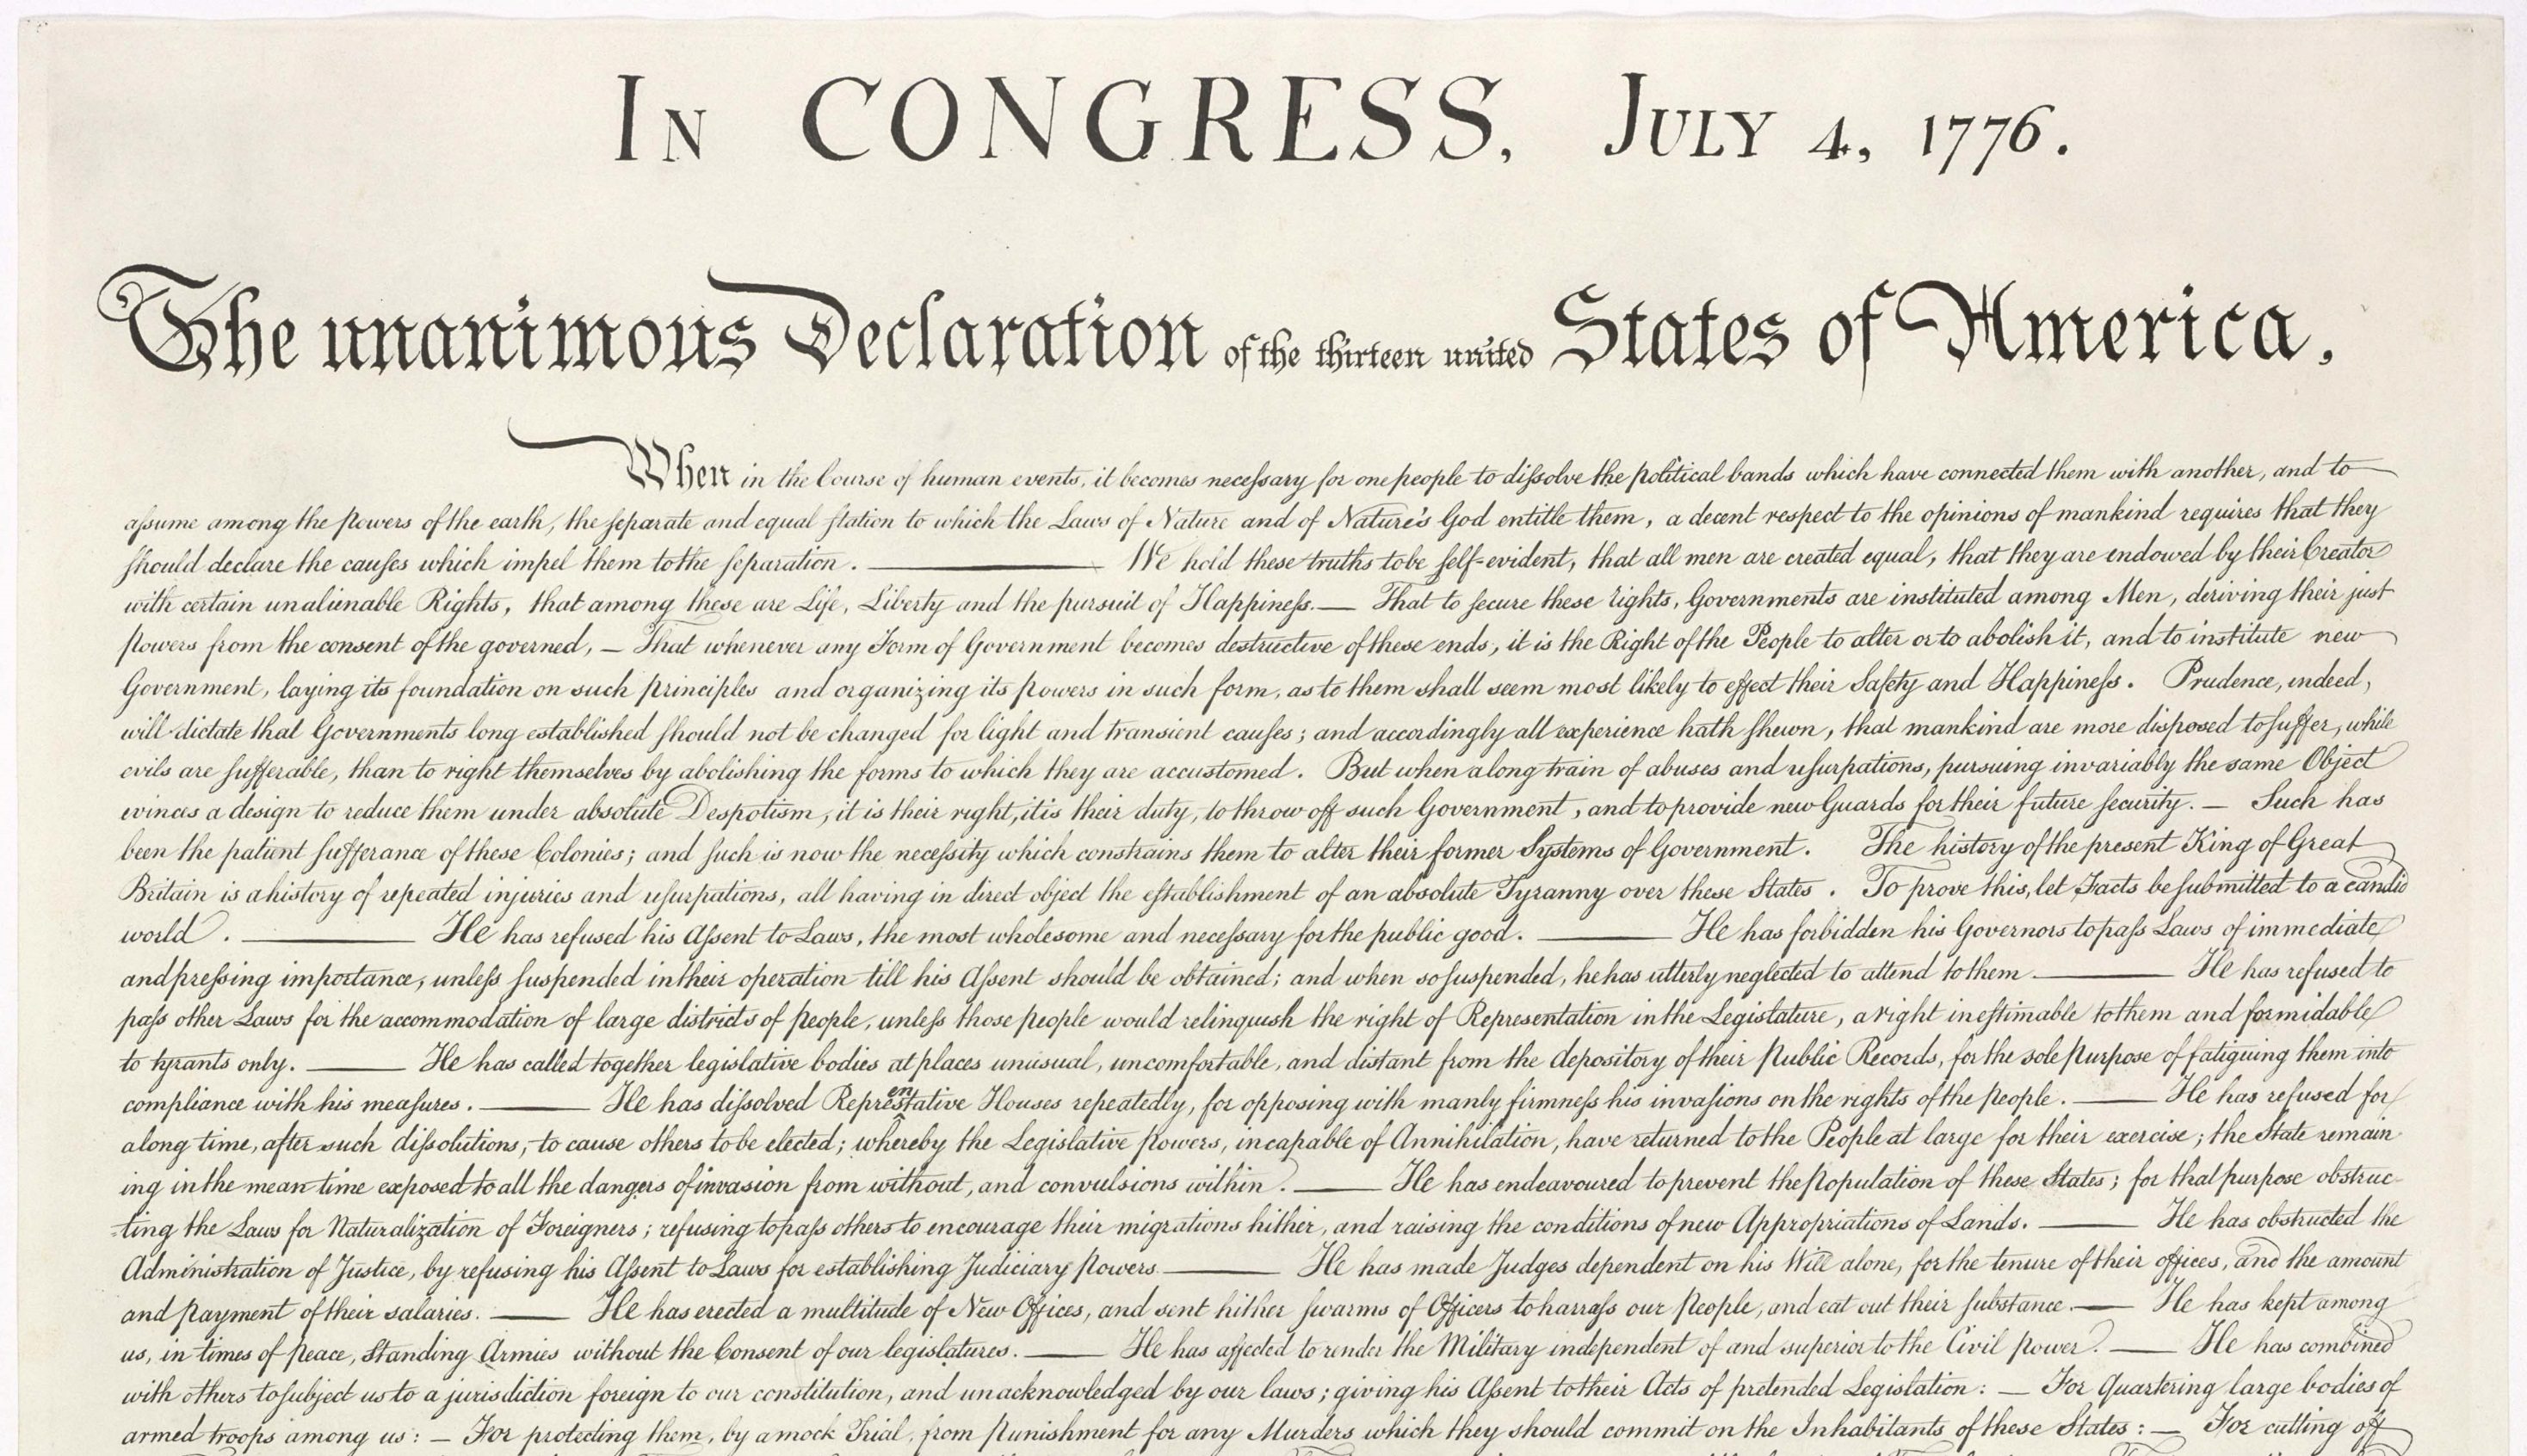 In CONGRESS, July 4, 1776.
The unanimous Declaration of the thirteen united States of America,
When in the Course of human events, it becomes necessary for one people to dissolve the political bands which have connected them with another, and to
assume among the powers of the earth, the separate and equal station to which the Laws of Nature and of Nature's God entitle them, a decent respect to the opinions of mankind requires that they
should declare the causes which impel them to the separation. ——— We hold these truths to be self-evident, that all men are created equal, that they are endowed by their Creator
with certain unalienable Rights, that among these are Life, Liberty and the pursuit of Happiness. — That to secure these rights, Governments are instituted among Men, deriving their just
powers from the consent of the governed, — That whenever any Form of Government becomes destructive of these ends, it is the Right of the People to alter or to abolish it, and to institute new
Government, laying its foundation on such principles and organizing its powers in such form, as to them shall seem most likely to effect their Safety and Happiness. Prudence, indeed,
will dictate that Governments long established should not be changed for light and transient causes; and accordingly all experience hath shewn, that mankind are more disposed to suffer, while
evils are sufferable, than to right themselves by abolishing the forms to which they are accustomed. But when a long train of abuses and usurpations, pursuing invariably the same Object
evinces a design to reduce them under absolute Despotism, it is their right, it is their duty, to throw off such Government, and to provide new Guards for their future security. — Such has
been the patient sufferance of these Colonies; and such is now the necessity which constrains them to alter their former Systems of Government. The history of the present King of Great
Britain is a history of repeated injuries and usurpations, all having in direct object the establishment of an absolute Tyranny over these States. To prove this, let Facts be submitted to a candid
world. ——— He has refused his Assent to Laws, the most wholesome and necessary for the public good. ——— He has forbidden his Governors to pass Laws of immediate
and pressing importance, unless suspended in their operation till his Assent should be obtained; and when so suspended, he has utterly neglected to attend to them. ——— He has refused to
pass other Laws for the accommodation of large districts of people, unless those people would relinquish the right of Representation in the Legislature, a right inestimable to them and formidable
to tyrants only. ——— He has called together legislative bodies at places unusual, uncomfortable, and distant from the depository of their Public Records, for the sole purpose of fatiguing them into
compliance with his measures. ——— He has dissolved Representative Houses repeatedly, for opposing with manly firmness his invasions on the rights of the people. ——— He has refused for
a long time, after such dissolutions, to cause others to be elected; whereby the Legislative powers, incapable of Annihilation, have returned to the People at large for their exercise; the State remain-
ing in the mean time exposed to all the dangers of invasion from without, and convulsions within. ——— He has endeavoured to prevent the population of these States; for that purpose obstruc-
ting the Laws for Naturalization of Foreigners; refusing to pass others to encourage their migrations hither, and raising the conditions of new Appropriations of Lands. ——— He has obstructed the
Administration of Justice, by refusing his Assent to Laws for establishing Judiciary powers. ——— He has made Judges dependent on his Will alone, for the tenure of their offices, and the amount
and payment of their salaries. ——— He has erected a multitude of New Offices, and sent hither swarms of Officers to harrass our people, and eat out their substance. — He has kept among
us, in times of peace, Standing Armies without the Consent of our legislatures. ——— He has affected to render the Military independent of and superior to the Civil power. ——— He has combined
with others to subject us to a jurisdiction foreign to our constitution, and unacknowledged by our laws; giving his Assent to their Acts of pretended Legislation: — For Quartering large bodies of
armed troops among us: — For protecting them, by a mock Trial, from punishment for any Murders which they should commit on the Inhabitants of these States: — For cutting off